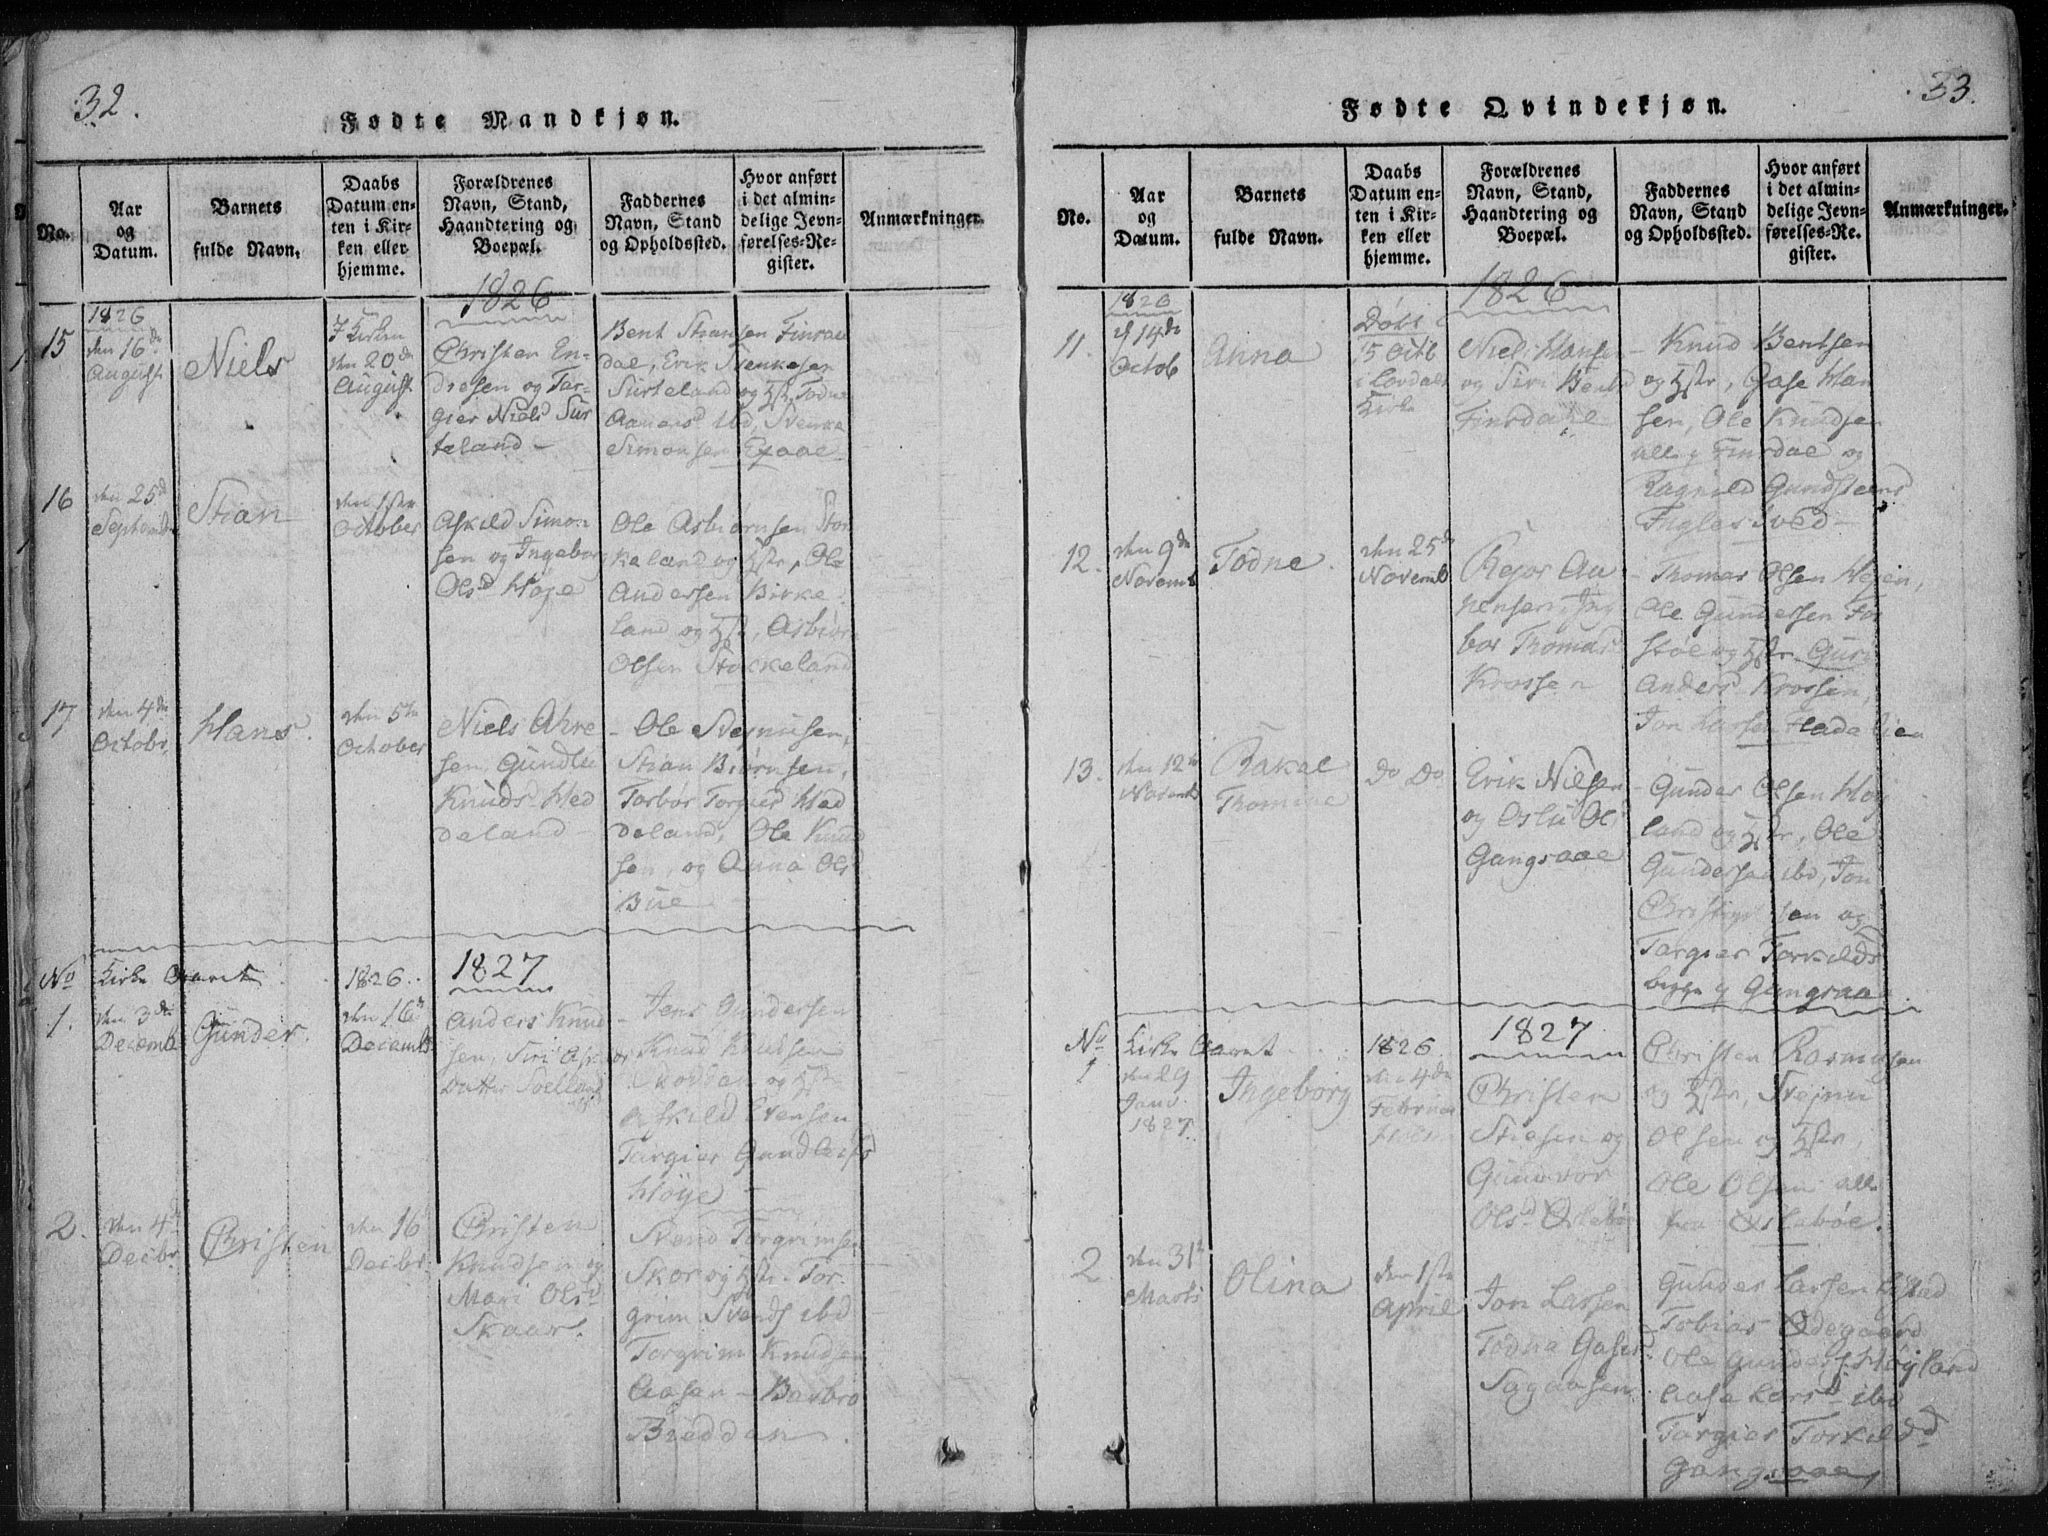 32.
Fødte Mandkjøn.
No.
Aar
og
Datum.
Barnets
fulde Navn.
Daabs
Datum en-
ten i Kir-
ken eller
hjemme.
Forældrenes
Navn, Stand,
Haandtering og
Boepæl.
Faddernes
Navn, Stand
og Opholdssted.
Hvor anført
i det almin-
delige Jevn-
førelses-Re-
gister.
Anmærkninger.
1826
15
1826
den 16de
August
Niels
I Kirken
den 20de
August
Christen En-
dresen og Tar-
gier Niels Sur
teland
Bent Stiansen Finsdal
dal, Erik Svenkesen
Surteland og Hstr, Todne
Aanens ibd, Svenke
Simonsen
16
den 25de
Septembr
Stian
den 1ste
October
Askild Simon
sen og Ingeborg
Olsd Høye
Ole Asbiørnsen Stor
keland og Hstr, Ole
Andersen Birke
land og Hstr, Asbiørn
Olsen Stockeland
17
den 4de
Octobr.
Hans.
den 5te
October
Niels Ahre
sen, Gundlu
Knuds Hed
deland
Ole Svejnusen,
Stian Biørnsen,
Torbør Torgiers Had
deland, Ole Knud
sen, og Anna Olsd
Bue
No
Kirke Aaret
1826.
1827
1.
den 3de
Decemb
Gunder
den 16de
Decemb
Anders Knud
sen, Siri
Datter
Jens Gundersen
Knud Knudsen
og Hstr
Askild Evensen
Targier Gundleifsd
Høye
2.
den 4de
Decbr.
Christen
den 16
Decbr.
Christen
Knudsen og
Mari Olsd
Skaar.
Svend Torgrimsen
Skor og Hstr. Tor-
grim Svends ibd
Torgrim Knudsen
Aasen - Barbro
Breddan.
33.
Fødte Qvindekjøn.
No.
Aar
og
Datum.
Barnets
fulde Navn.
Daabs
Datum en-
ten i Kir-
ken eller
hjemme.
Forældrenes
Navn, Stand,
Haandtering og
Boepæl.
Faddernes
Navn, Stand
og Opholdssted.
Hvor anført
i det almin-
delige Jevn-
førelses-Re-
gister.
Anmærkninger.
1826
11.
1826
14de
Octob
Anna
Døbt
15 Octb
i
Kirke
Niels Hansen
og Siri Bentsd
Finsdahl
Knud Bentsen
og Hstr, Gase Han
sen, Ole Knudsen
alle Finsdal og
Ragnild Gundsteens
12.
den 9de
Novemb
Todne
den 25de
Novemb
Rejar Aa
nensen, Ing
bor Thomasd
Krossen
Thomas Olsen
Ole Gundersen
og Hstr Guri
Andersd Krossen,
Jon Larsen
13.
den 12te
Novemb
Rakal
Thomine
Do Do
Erik Nielsen
og Oslu Olsd
Gangsaae
Gunder Olsen Høy
land og Hstr, Ole
Gundersen ibd, Jon
Christensen og
Targier Torkildsd
begge Gangsaae.
No
Kirke Aaret
1826.
1827
1
den 29
Janv.
1827.
Ingeborg
den 4de
Februar
Christen
Stiesen og
Gunwor
Olsd Oslebøe
Christen Rasmussen
og Hstr, Svejnu
Olsen og Hstr,
Ole Olsen alle
fra Oslebøe.
2
den 31te
Marts
Olina
den 1ste
April
Jon Larsen
Todne Gasesd
Sagaasen
Gunder Larsen
Tobias Ødegaard
Ole Gunders Høyland
Aase Larsd ibd
Targier Torkildsd
Gangsaae